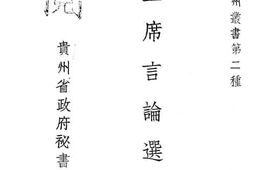 州叢書第二種
席言論選
貴州省政府秘書